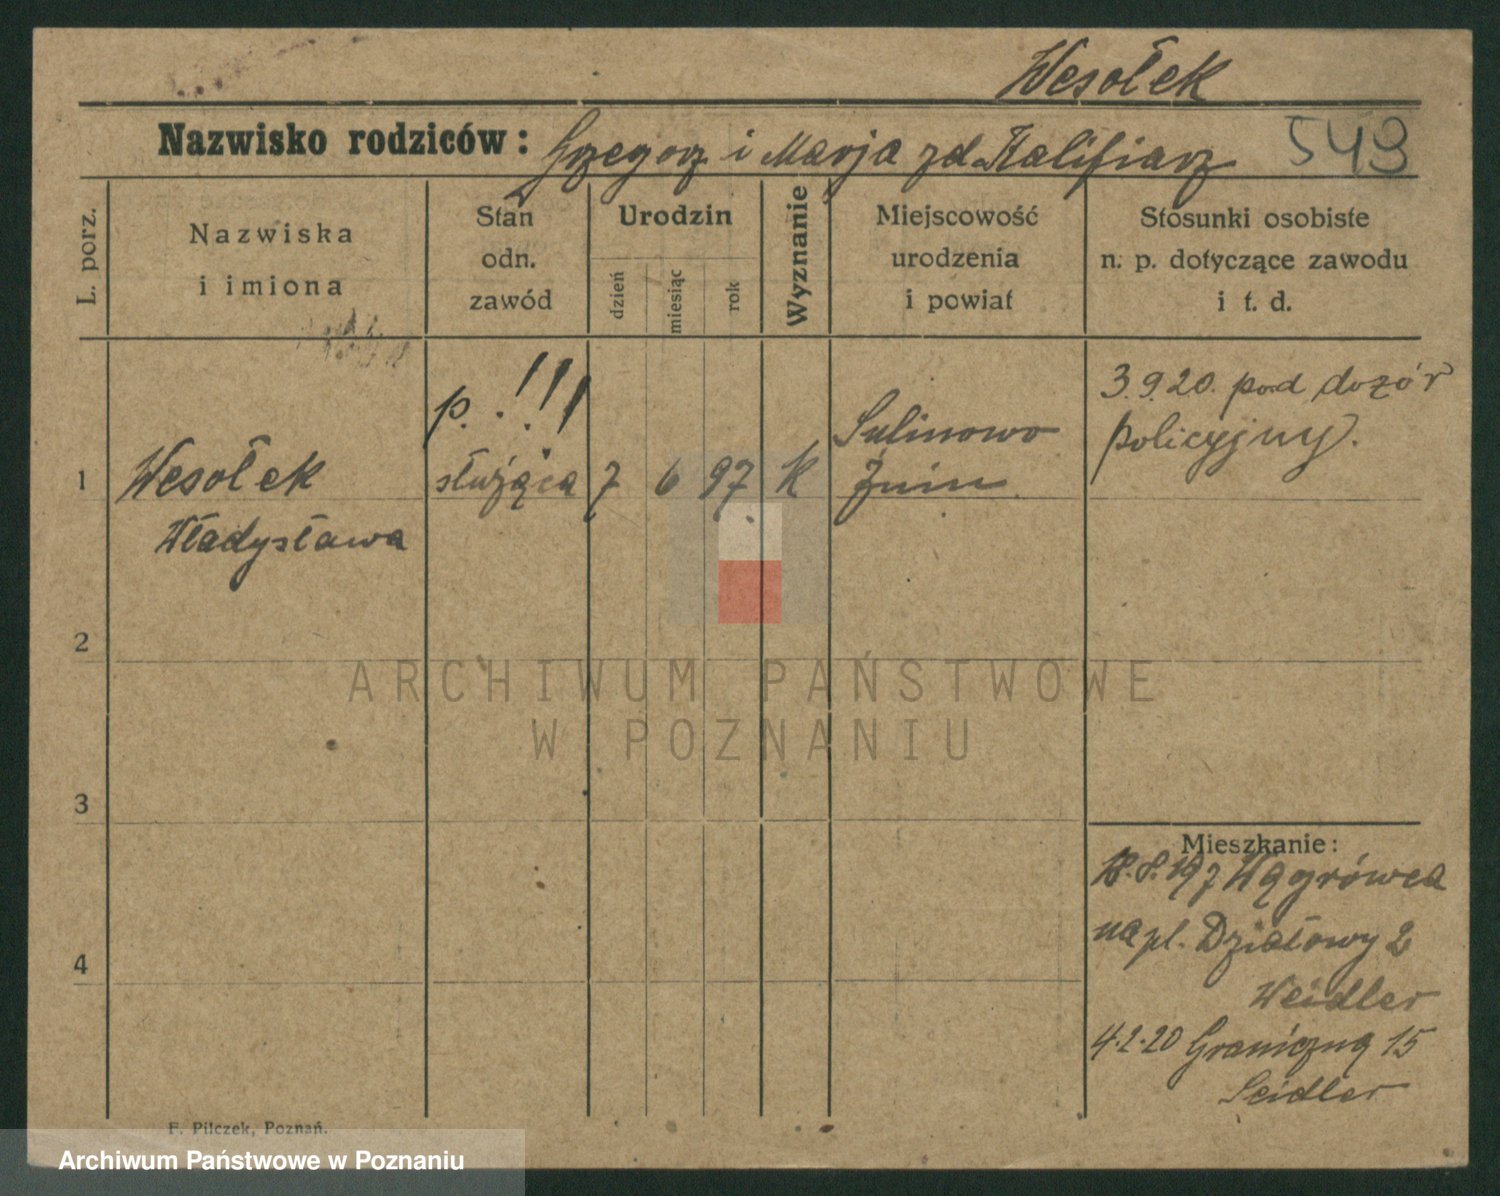 Wesołek
Nazwisko rodziców: Grzegorz i Marja zd. Kalifiarz 549
L. porz.
Nazwiska
i imiona
Stan
odn.
zawód
Urodzin
dzień
miesiąc
rok
Wyznanie
Miejscowość
urodzenia
i powiat
Stosunki osobiste
n. p. dotyczące zawodu
i t. d.
1
Wesołek
Władysława
p. !!!
służąca
7 6 97 k
Sulinowo
Żnin
3.9.20. pod dozór
policyjny.
2
3
4
Mieszkanie:
18.8.19 z Wągrówca
na pl. Działowy 2
Weidler
4.2.20 Graniczną 15
Seidler
F. Pilczek, Poznań.
ARCHIWUM PAŃSTWOWE
W POZNANIU
Archiwum Państwowe w Poznaniu